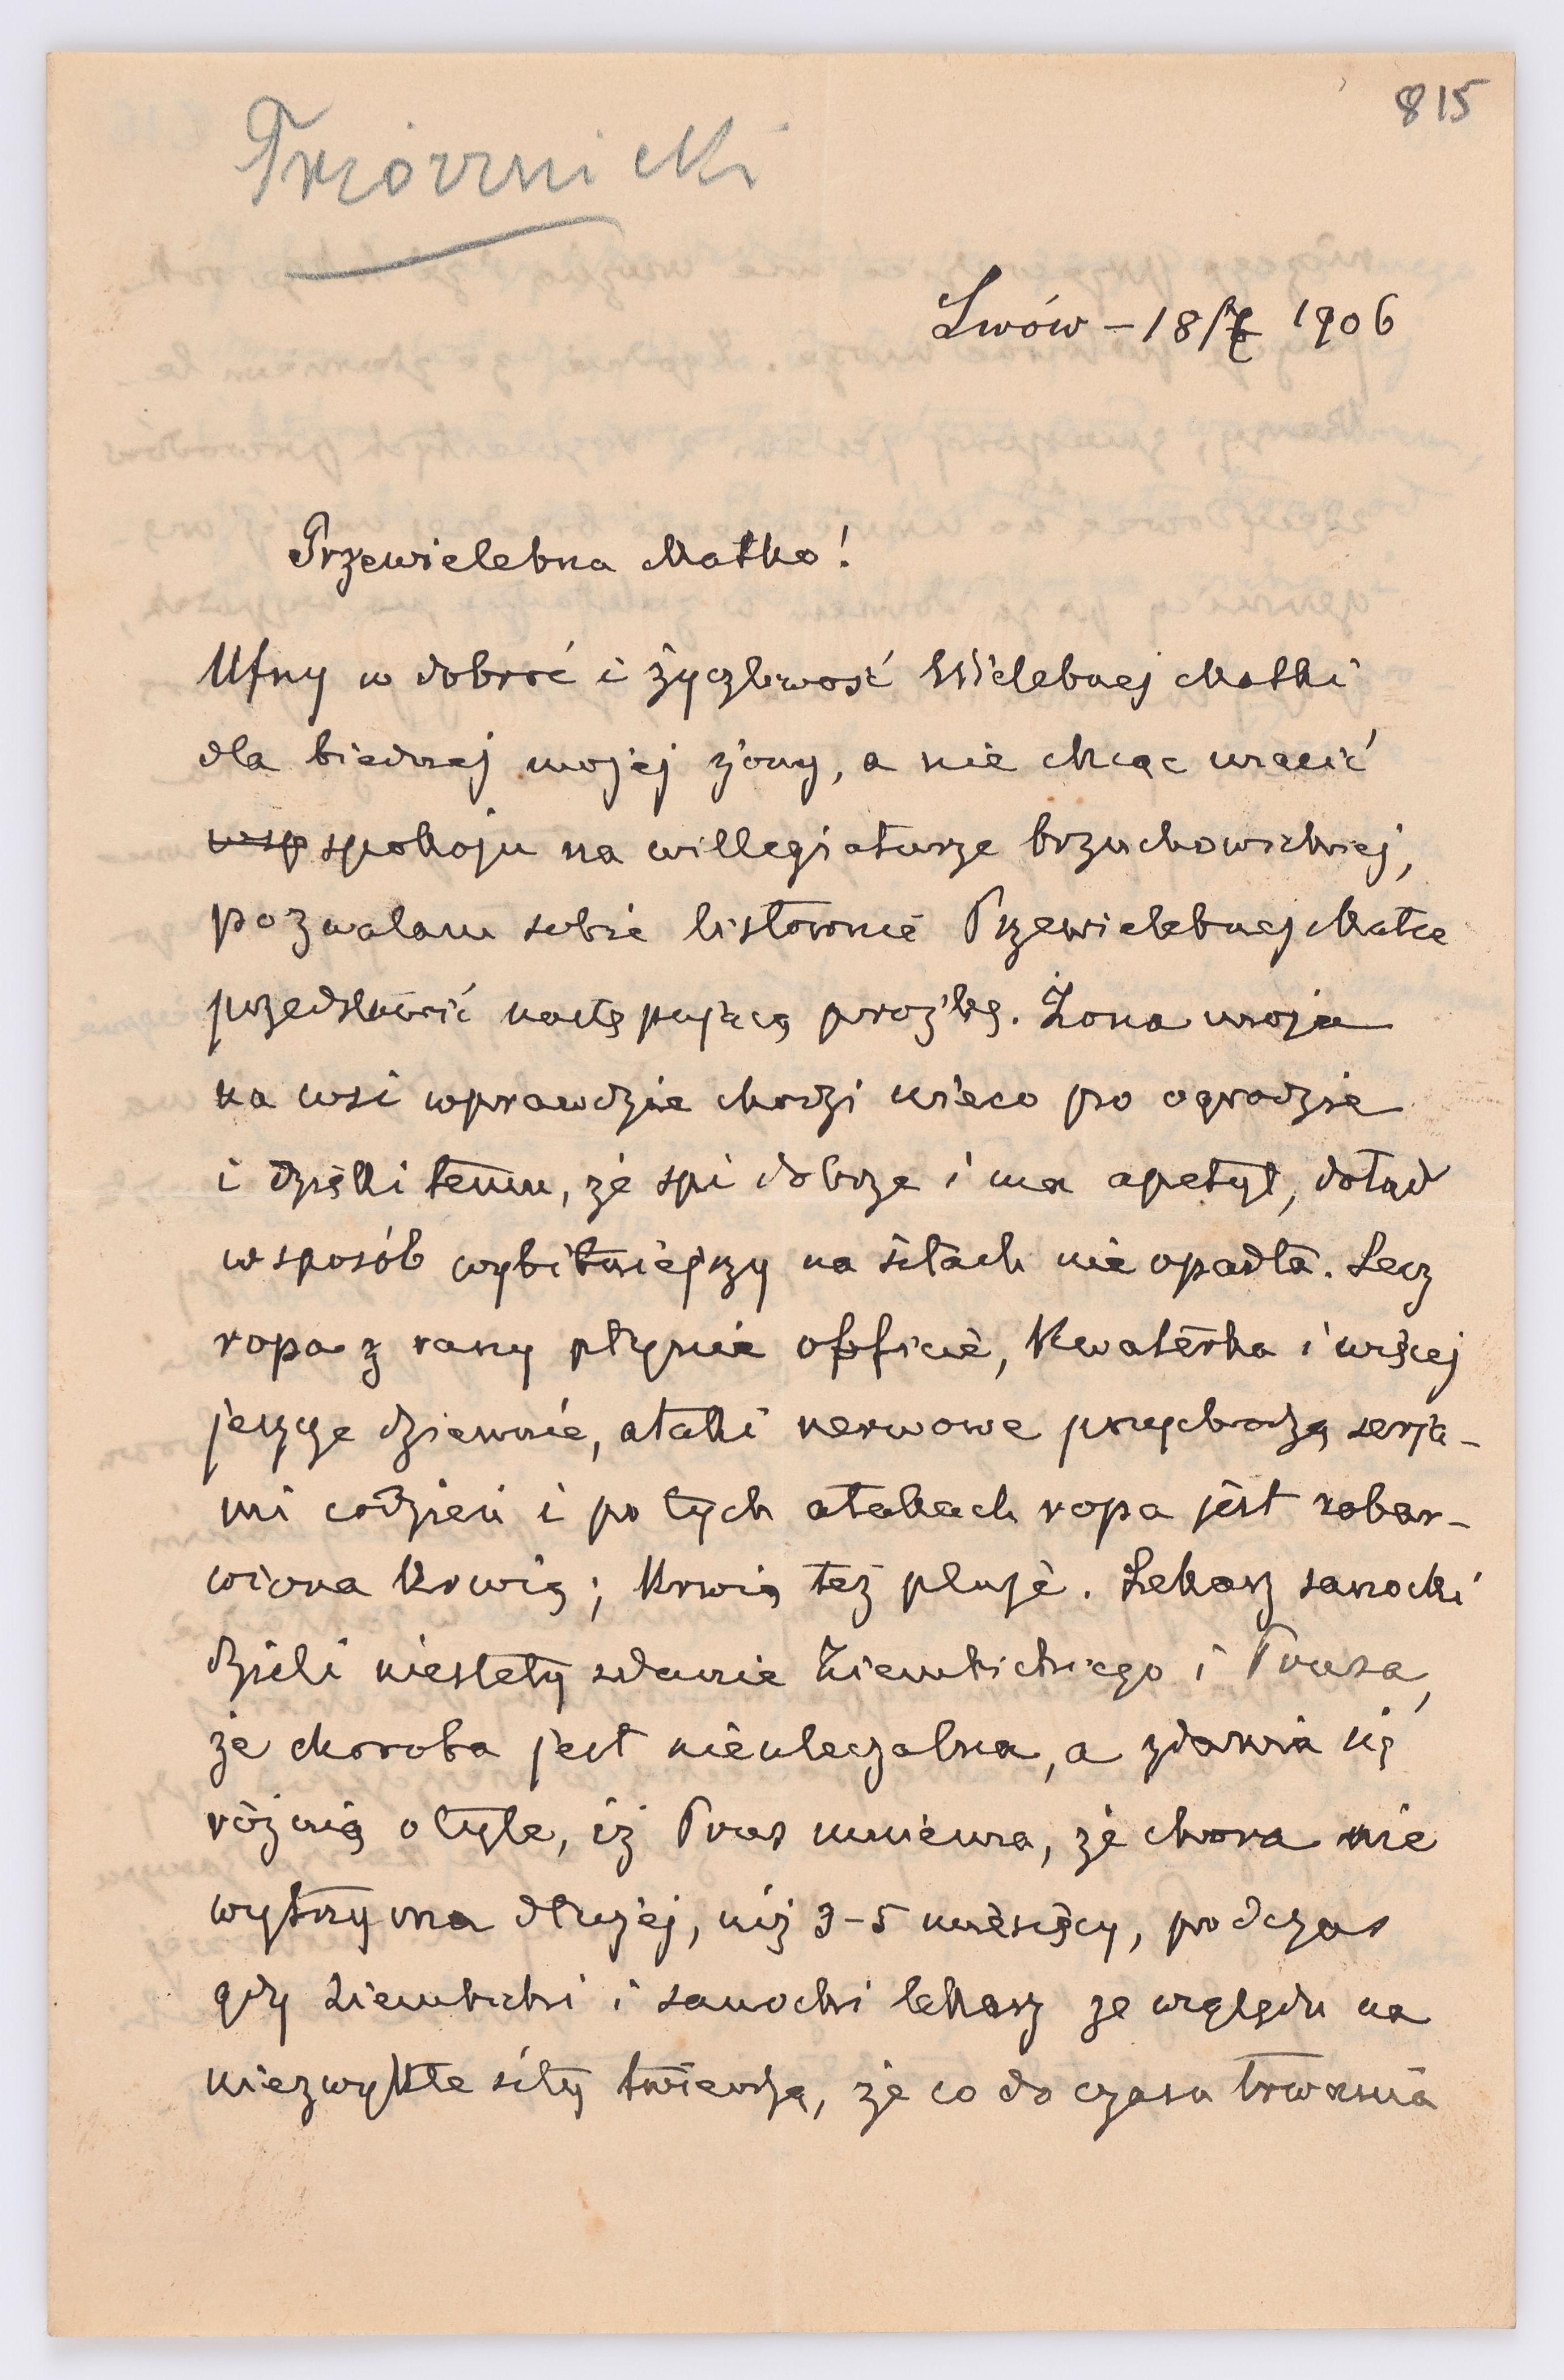 815
Lwów – 18/7 1906
Przewielebna Matko!
Ufny w dobroć i życzliwość Wielebnej Matki
dla biednej mojej żony, a nie chcąc
wsp spokoju na willegiaturze brzuchowickiej,
pozwalam sobie listownie Przewielebnej Matce
przedstawić następującą proźbę. Żona moja
na wsi wprawdzie chodzi nieco po ogrodzie
i dzięki temu, że śpi dobrze i ma apetyt, dotąd
w sposób wybitniejszy na siłach nie opadła. Lecz
ropa z rany płynie opficie, kwaterka i więcej
jeszcze dziennie, ataki nerwowe przychodzą serja-
mi codzień i po tych atakach ropa jest zabar-
wiona krwią; krwią też pluje. Lekarz sanocki
dzieli niestety zdanie Ziembickiego i Prusa,
że choroba jest nieuleczalna, a zdania się
różnią o tyle, iż Prus mniema, że chora nie
wytrzyma dłużej, niż 3–5 miesięcy, podczas
gdy Ziembicki i sanocki lekarz ze względu na
niezwykłe siły twierdzą, że co do czasu trwania